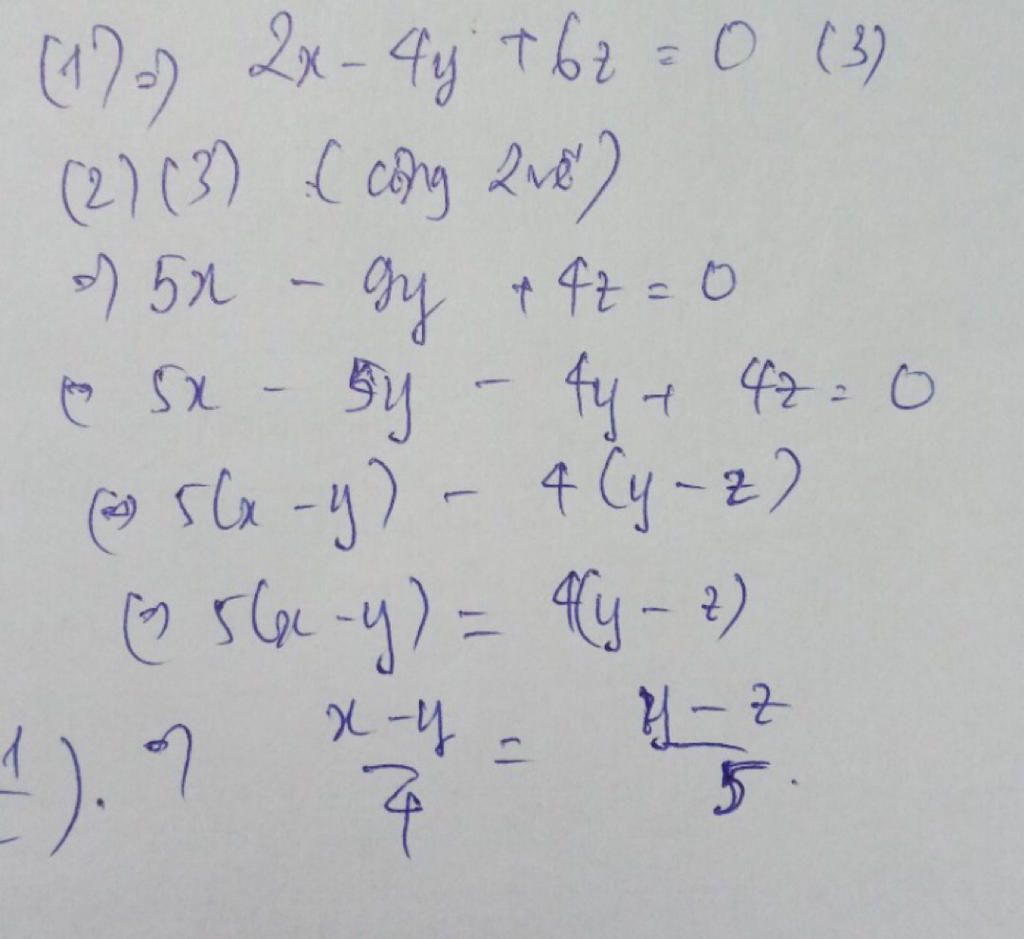 (1) ⇒ 2x - 4y + 6z = 0 (3)
(2) (3) (cộng 2 vế)
⇒ 5x - 9y + 4z = 0
⇔ 5x - 5y - 4y + 4z = 0
⇔ 5(x - y) - 4(y - z)
⇔ 5(x - y) = 4(y - z)
1 ). ⇒ x - y / 4 = y - z / 5 .